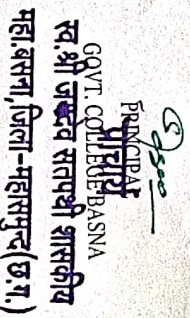 PRINCIPAL
प्राचार्य
GOVT. COLLEGE BASNA
स्व.श्री जयदेव सतपथी शासकीय
महा.बसना,जिला-महासमुन्द(छ.ग.)